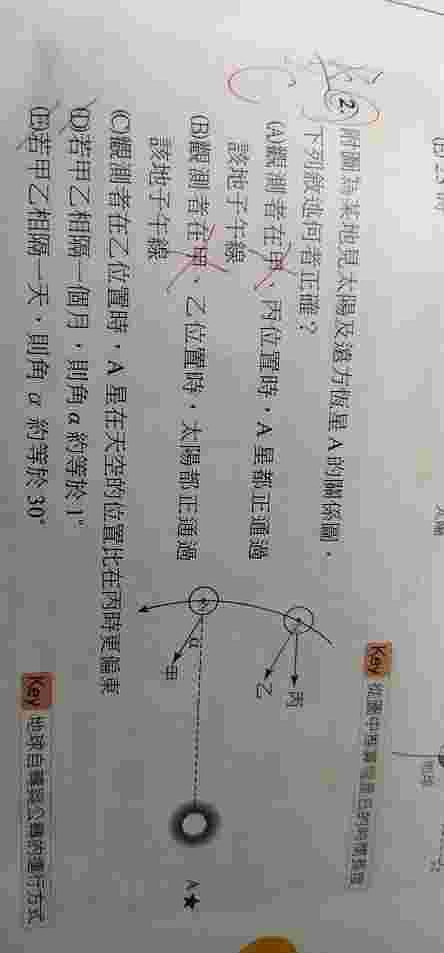 2. 附圖為某地見太陽及遠方恆星A的關係圖，
下列敘述何者正確？
(A)觀測者在甲、丙位置時，A星都正通過
該地子午線
(B)觀測者在甲、乙位置時，太陽都正通過
該地子午線
(C)觀測者在乙位置時，A星在天空的位置比在丙時更偏東
(D)若甲乙相隔一個月，則角α約等於1°
(E)若甲乙相隔一天，則角α約等於30°
丙
乙
甲
α
A★
C
Key
Key 地球自轉與公轉的運行方式
太陽
地球